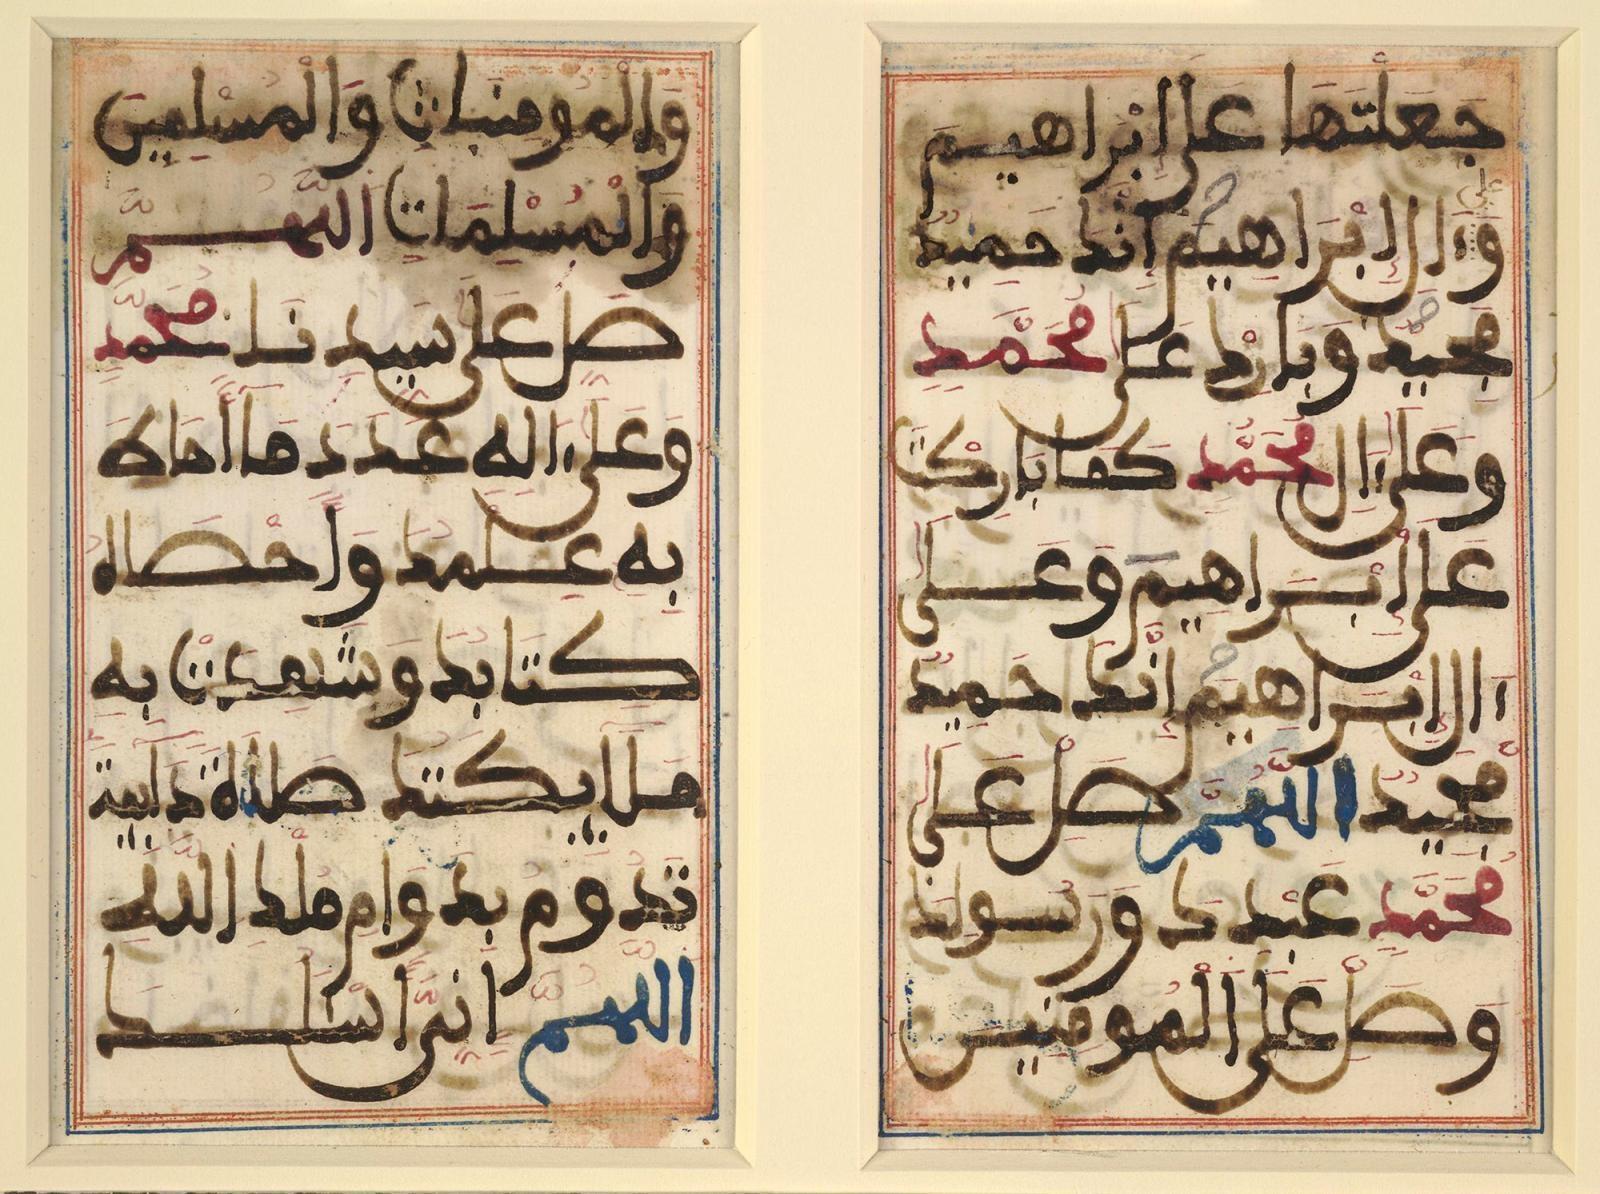 جعلتها على إبراهيم
وعلى ءال إبراهيم إنك حميد
مجيد وبارك على محمد
وعلى ءال محمد كما باركت
على إبراهيم وعلى
ءال إبراهيم إنك حميد
مجيد اللهم صل على
محمد عبدك ورسولك
وصل على المومنين
والمومنات والمسلمين
والمسلمات اللهم
صل على سيدنا محمد
وعلى ءاله عدد ما أحاط
به علمك وأحصاه
كتابك وشهدت به
ملايكتك صلاة دايمة
تدوم بدوام ملك الله
اللهم إني أسلك